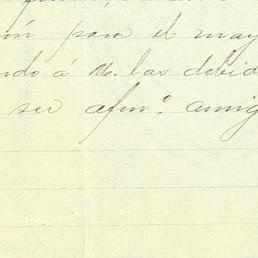 ón para el may
ndo á U. las debid
su afmo. amig